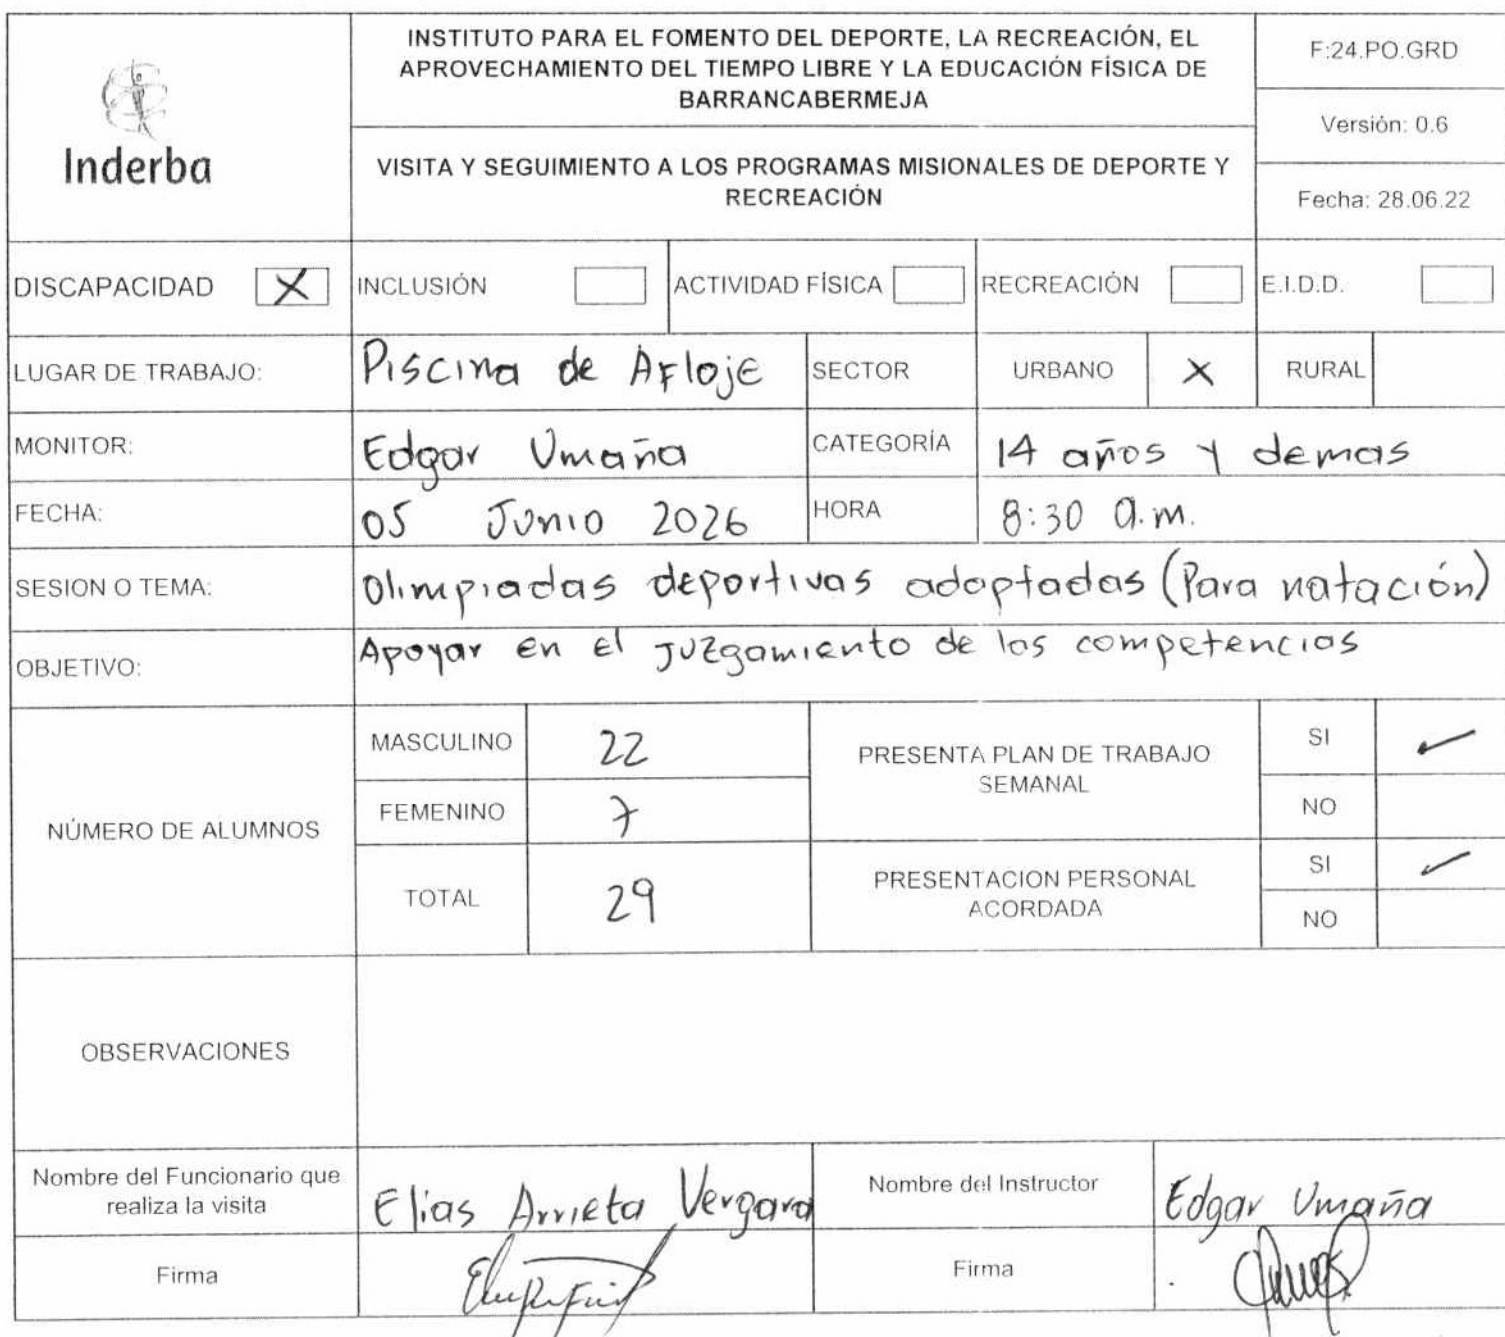 Inderba
INSTITUTO PARA EL FOMENTO DEL DEPORTE, LA RECREACIÓN, EL
APROVECHAMIENTO DEL TIEMPO LIBRE Y LA EDUCACIÓN FÍSICA DE
BARRANCABERMEJA
VISITA Y SEGUIMIENTO A LOS PROGRAMAS MISIONALES DE DEPORTE Y
RECREACIÓN
F:24.PO.GRD
Versión: 0.6
Fecha: 28.06.22
DISCAPACIDAD X INCLUSIÓN ACTIVIDAD FÍSICA RECREACIÓN E.I.D.D.
LUGAR DE TRABAJO: Piscina de Afloje SECTOR URBANO X RURAL
MONITOR: Edgar Umaña CATEGORÍA 14 años y demas
FECHA: 05 Junio 2026 HORA 8:30 a.m.
SESION O TEMA: Olimpiadas deportivas adaptadas (Para natación)
OBJETIVO: Apoyar en el juzgamiento de las competencias
NÚMERO DE ALUMNOS
MASCULINO 22
FEMENINO 7
TOTAL 29
PRESENTA PLAN DE TRABAJO
SEMANAL
SI ✓
NO
PRESENTACION PERSONAL
ACORDADA
SI ✓
NO
OBSERVACIONES
Nombre del Funcionario que
realiza la visita
Elias Arrieta Vergara
Nombre del Instructor
Edgar Umaña
Firma
Firma